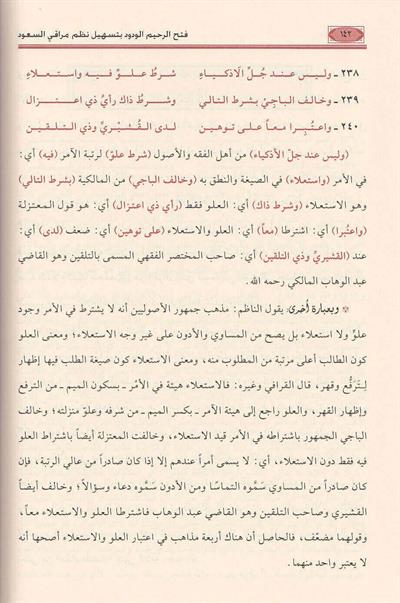 ١٤٢
فتح الرحيم الودود بتسهيل نظم مراقي السعود
٢٣٨ - وليس عند جُلِّ الَاذكياء شرطُ علوٍّ فيه واستعلاءِ
٢٣٩ - وخالف الباجيْ بشرط التالي وشرطُ ذاك رأيُ ذي اعتزال
٢٤٠ - واعتُبِرا معاً على توهين لدى القُشَيْريِّ وذي التلقين
(وليس عند جلّ الأذكياء) من أهل الفقه والأصول (شرط علوّ) لرتبة الآمر (فيه) أي:
في الأمر (واستعلاء) في الصيغة والنطق به (وخالف الباجي) من المالكية (بشرط التالي)
وهو الاستعلاء (وشرط ذاك) أي: العلو فقط (رأي ذي اعتزال) أي: هو قول المعتزلة
(واعتبرا) أي: اشترطا (معاً) أي: العلو والاستعلاء (على توهين) أي: ضعف (لدى) أي:
عند (القشيريّ وذي التلقين) أي: صاحب المختصر الفقهي المسمى بالتلقين وهو القاضي
عبد الوهاب المالكي رحمه الله.
وبعبارة أخرى: يقول الناظم: مذهب جمهور الأصوليين أنه لا يشترط في الأمر وجود
علوٍّ ولا استعلاء بل يصح من المساوي والأدون على غير وجه الاستعلاء؛ ومعنى العلو
كون الطالب أعلى مرتبة من المطلوب منه، ومعنى الاستعلاء كون صيغة الطلب فيها إظهار
لِتَرَفُّع وقهر، قال القرافي وغيره: فالاستعلاء هيئة في الأمْر ـ بسكون الميم ـ من الترفع
وإظهار القهر، والعلو راجع إلى هيئة الآمر ـ بكسر الميم ـ من شرفه وعلوّ منزلته؛ وخالف
الباجي الجمهور باشتراطه في الأمر قيد الاستعلاء، وخالفت المعتزلة أيضاً باشتراط العلو
فيه فقط دون الاستعلاء، أي: لا يسمى أمراً عندهم إلا إذا كان صادراً من عالي الرتبة، فإن
كان صادراً من المساوي سَمَّوه التماسًا ومن الأدون سَمَّوه دعاء وسؤالاً؛ وخالف أيضاً
القشيري وصاحب التلقين وهو القاضي عبد الوهاب فاشترطا العلو والاستعلاء معاً،
وقولهما مضعَّف، فالحاصل أن هناك أربعة مذاهب في اعتبار العلو والاستعلاء أصحها أنه
لا يعتبر واحد منهما.